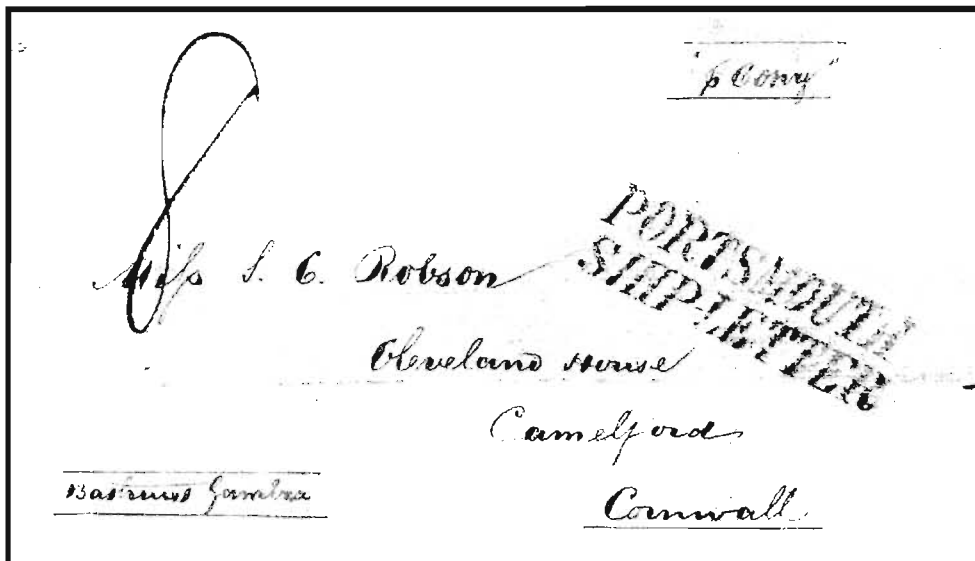 "p Conry"
8
PORTSMOUTH
SHIP-LETTER
Miss S. C. Robson
Cleveland House
Camelford
Cornwall
Bathurst Gambia